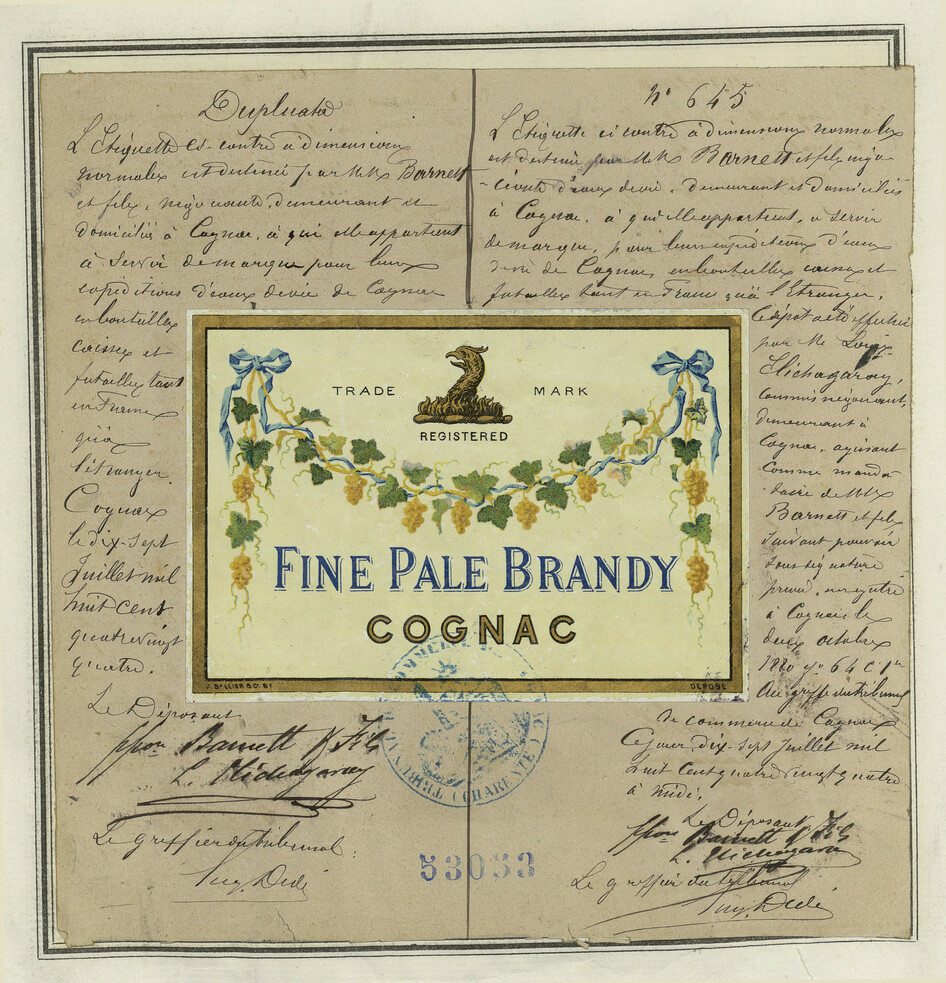 Duplicata
L'Etiquette ci-contre à dimensions
normales est destinée par MM. Barnett
et fils, négociants, demeurant et
domiciliés à Cognac, à qui elle appartient
à servir de marque pour leurs
expéditions d'eaux de vie de Cognac
en bouteilles
caisses et
futailles tant
en France
qu'à
l'étranger.
Cognac
le dix-sept
Juillet mil
huit cent
quatre vingt
quatre.
Le Déposant
ppon Barnett & Fils
L. Elichagaray
Le greffier du tribunal
Eug. Dédé
N° 645
L'Etiquette ci contre à dimensions normales
est destinée par MM Barnett et fils, négo-
-ciants d'eaux de vie, demeurant et domiciliés
à Cognac, à qui elle appartient, à servir
de marque, pour leurs expéditions d'eaux
de vie de Cognac, en bouteilles caisses et
futailles tant en France qu'à l'Etranger.
Le dépôt a été effectué
par Mr Louis
Elichagaray,
commis négociant,
demeurant à
Cognac, agissant
comme manda-
-taire de MM
Barnett et fils
suivant pouvoir
sous signature
privée, enregistré
à Cognac le
deux octobre
1880 fo 64 C 1re
Au greffe du tribunal
de commerce de Cognac
Ce jour, dix-sept Juillet mil
huit cent quatre vingt quatre
à midi.
Le Déposant
ppon Barnett & Fils
L. Elichagaray
Le greffier du tribunal
Eug. Dédé
TRADE MARK
REGISTERED
FINE PALE BRANDY
COGNAC
DEPOSÉ
TRIBUNAL DE COMMERCE DE COGNAC (CHARENTE)
53053